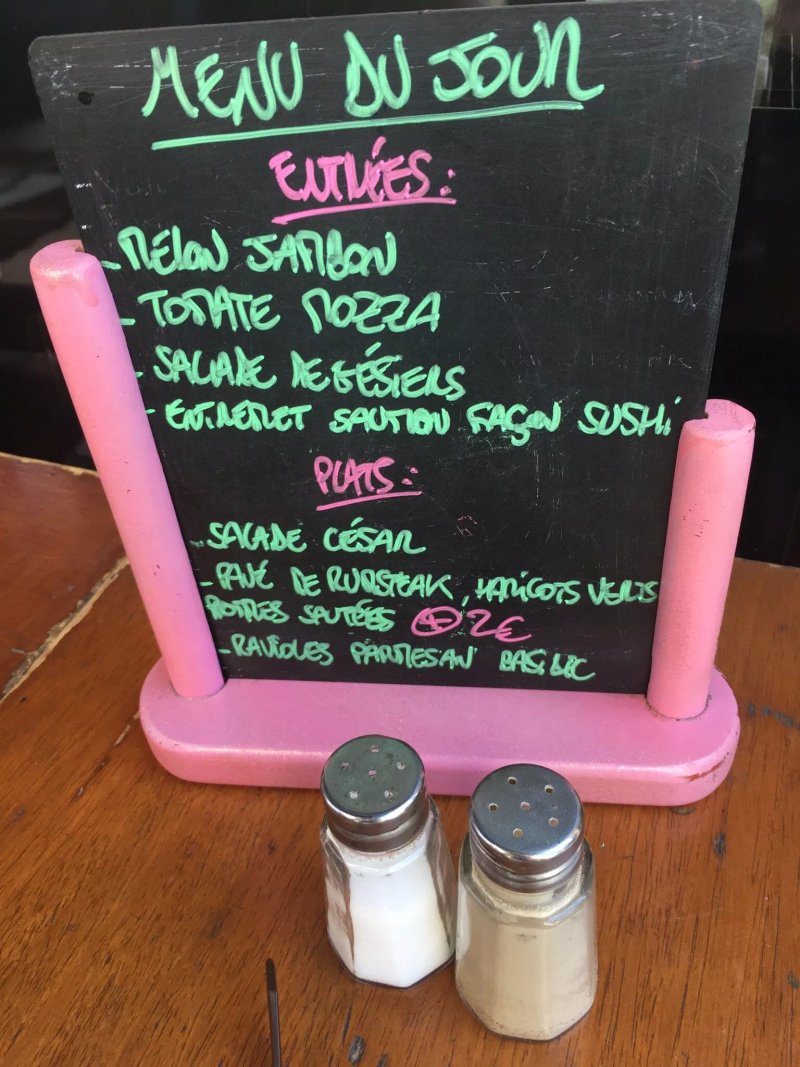 MENU DU JOUR
ENTRÉES :
- MELON JAMBON
- TOMATE MOZZA
- SALADE DE GÉSIERS
- ENTREMET SAUMON FAÇON SUSHI
PLATS :
- SALADE CÉSAR
- PAVÉ DE RUMSTEAK, HARICOTS VERTS
POMMES SAUTÉES + 2€
- RAVIOLES PARMESAN BASILIC